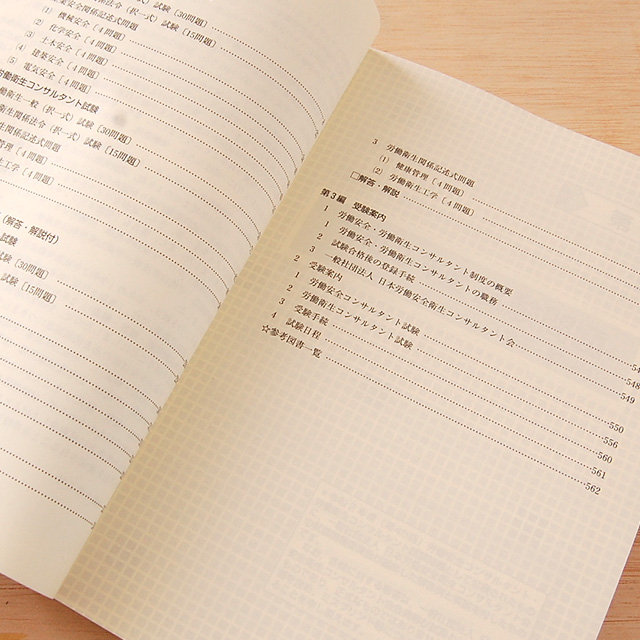 試験〔30問題〕
業安全関係法令（択一式）試験〔15問題〕
業安全関係記述式問題
(1) 機械安全〔4問題〕
(2) 化学安全〔4問題〕
(3) 土木安全〔4問題〕
(4) 建築安全〔4問題〕
(5) 電気安全〔4問題〕
労働衛生コンサルタント試験
働衛生一般（択一式）試験〔30問題〕
衛生関係法令（択一式）試験〔15問題〕
生関係記述式問題
管理〔4問題〕
生工学〔4問題〕
（解答・解説付）
試験
試験〔30問題〕
試験〔15問題〕
3 労働衛生関係記述式問題
(1) 健康管理〔4問題〕
(2) 労働衛生工学〔4問題〕
□解答・解説
第3編 受験案内
1 労働安全・労働衛生コンサルタント制度の概要
1 労働安全・労働衛生コンサルタントの職務
2 試験合格後の登録手続 548
3 一般社団法人 日本労働安全衛生コンサルタント会 549
2 受験案内
1 労働安全コンサルタント試験 550
2 労働衛生コンサルタント試験 556
3 受験手続 560
4 試験日程 561
☆参考図書一覧 562